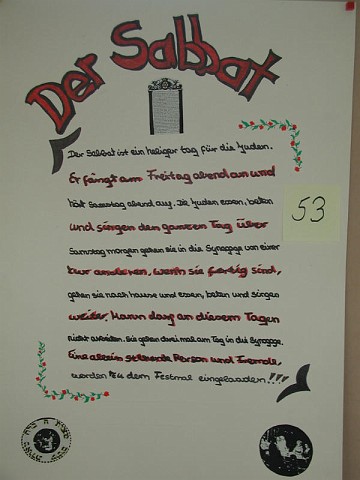 Der Sabbat
Der Sabbat ist ein heiliger tag für die Juden.
Er fängt am Freitag abend an und
hört Samstag abend auf. Die Juden essen, beten
und singen den ganzen Tag über
Samstag morgen gehen sie in die Synagoge von einer
zur anderen, wenn sie fertig sind,
gehen sie nach hause und essen, beten und singen
weiter, Mann darf an diesem Tagen
nicht arbeiten. sie gehen drei mal am Tag in die Synagoge.
Eine allein stehende Person und Fremde,
werden zu dem Festmal eingelanden!!!"
53